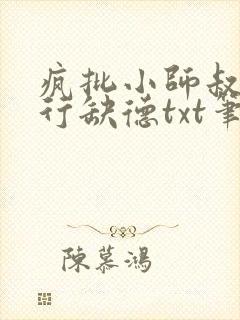 疯批小師叔
行缺德txt筆
陳慕鴻